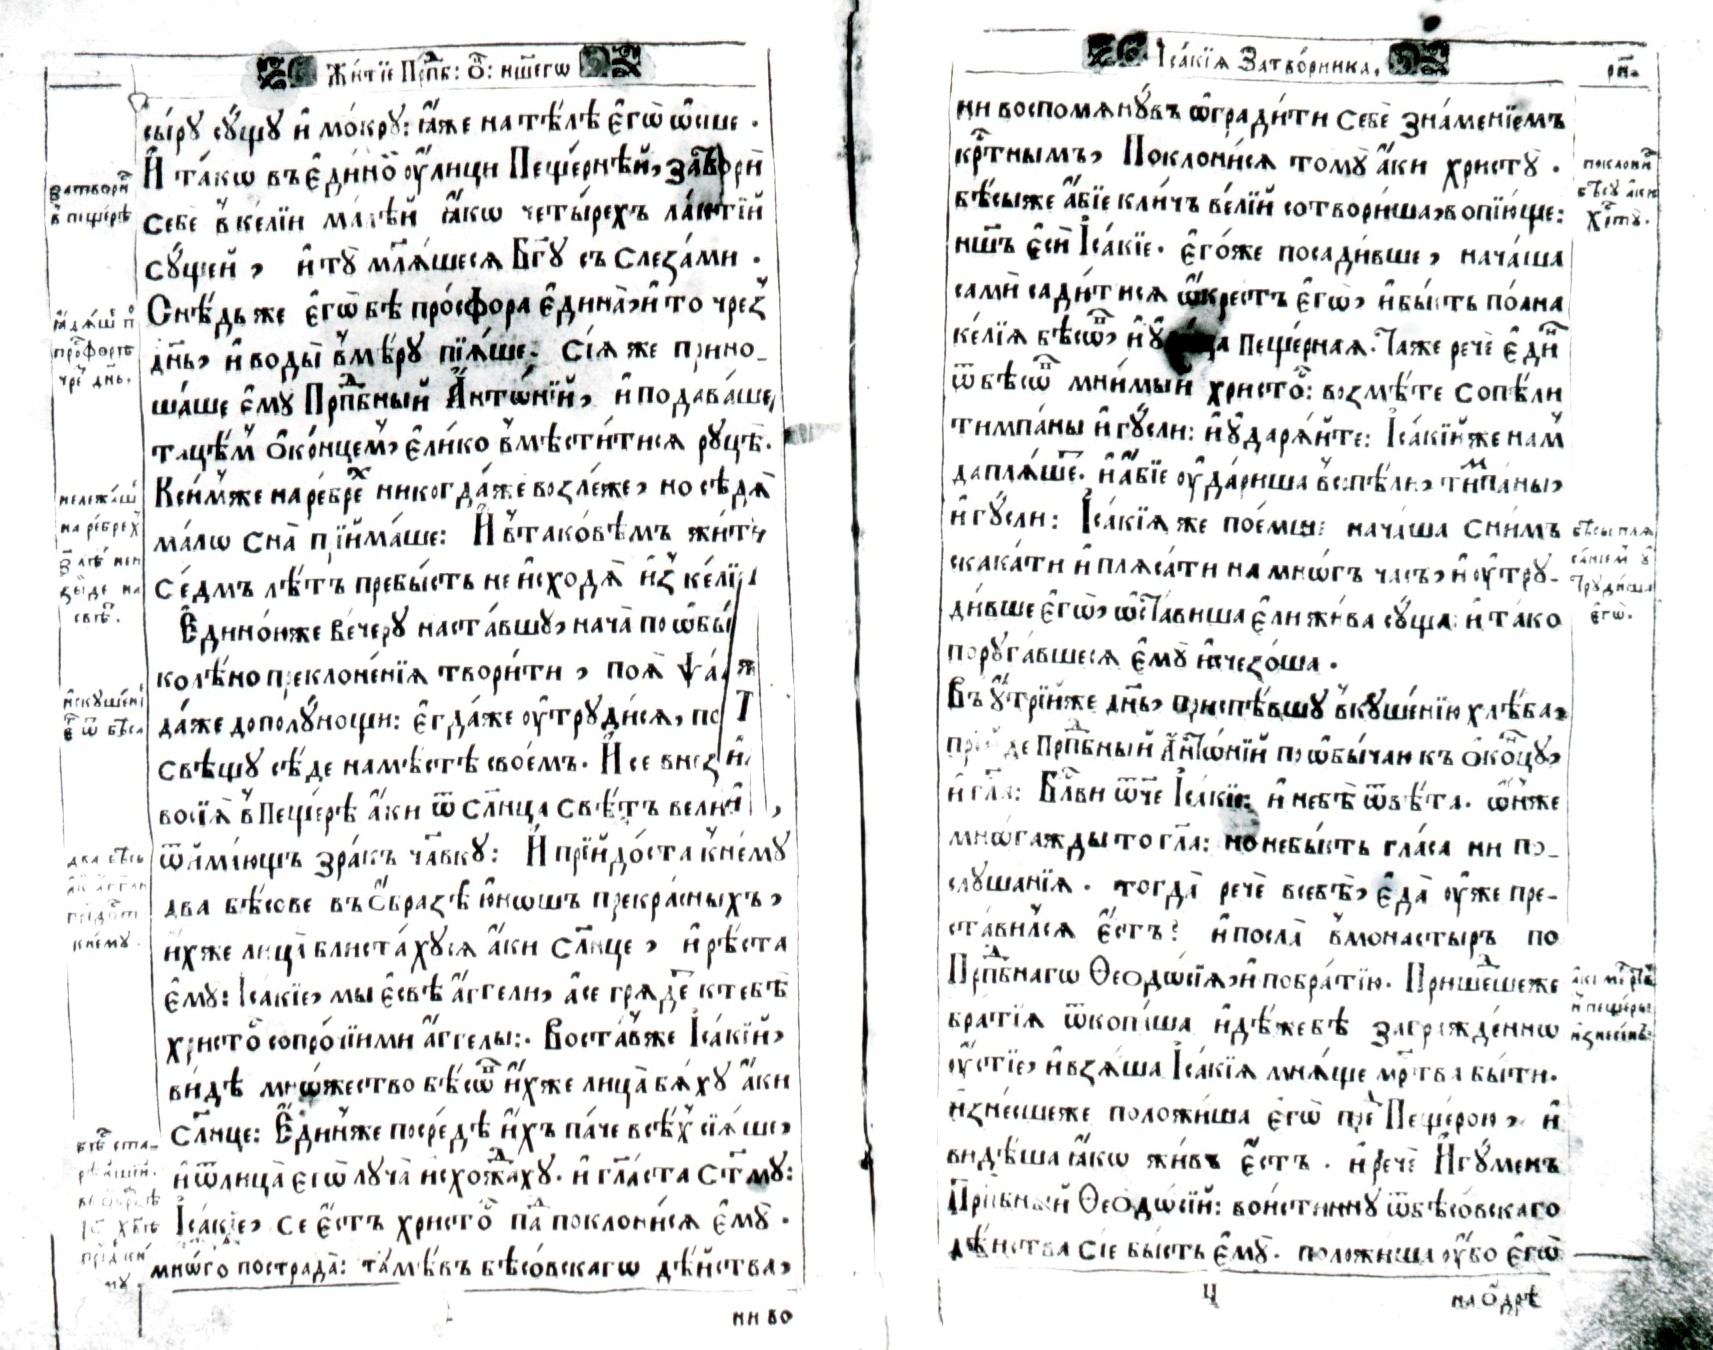 Жи́тїе Прп�ⷣб: Ѻ҃: н҃шегѡ
сы́ру сꙋ́щу и҆ мо́кру: ꙗ҆́же на тѣ́лѣ є҆гѡ̀ ѡ҆́сше.
И҆ та́кѡ въ є҆ди́но́ ᲂу҆́лици Пеще́рнѣй, затвори̇̀
себѐ в̾ ке́лїи ма́лѣй ꙗ҆́кѡ четы́рехъ ла́ктїй
сꙋ́щей, и҆ тꙋ̀ мл҃ѧ́шесѧ Бг҃у съ слеза́ми.
Снѣ́дь же є҆гѡ̀ бѣ про́сфора є҆ди́на̀, и҆ то чрез̾
дн҃ь, и҆ воды̀ в̾мѣ́ру пїѧ́ше. Сїѧ́ же прино-
ша́ше є҆му̀ Прп�ⷣбный А҆нтѡ́нїй, и҆ подава́ше,
тацѣ́м̾ О҆ко́нцем̾, є҆ли́ко в̾мѣсти́тисѧ руцѣ̀.
К симже на ре́бре́х̾ никогда́же возле́же, но сѣдѧ̀
ма́лѡ сна̀ прїйма́ше: И҆ в̾ тако́вѣмъ житї
се́дмъ лѣ́тъ пребы́сть не и҆сходѧ̀ и҆з̾ ке́лїи
Є҆ди́ноиже ве́черꙋ наста́вшу, нача̀ по ѡ҆бы́
колѣ́но преклоне́нїѧ твори́ти, поѧ̀ ѱа́
да́же до полꙋ́нощи: є҆гда́же ᲂу҆труди́сѧ, по
свѣщꙋ сѣ́де на мѣ́стѣ свое́мъ. И҆ се внеза
восїѧ̀ в̾ Пеще́рѣ а҆́ки ѿ сл҃нца свѣ́тъ вели́й,
ѿйма́ющъ зра́къ чл҃вку: И҆ прїидо́ста к̾ не́му
два бѣ́сове въ О҆́бразѣ ю҆́ношъ прекра́сныхъ,
и҆́хже лица̀ блиста́хусѧ а҆́ки сл҃нце, и҆ рѣ́ста
є҆му̀: І҆са́кїе, мы є҆свѣ̀ а҆́ггели, а҆ се грѧде́ к тебѣ̀
христо́ с про́чїими а҆́ггелы:. Воста́в̾же І҆са́кїй,
ви́дѣ мно́жество бѣсѡ́ и҆́хже лица̀ бѧ́ху а҆́ки
сл҃нце: Є҆ди́н̾же посре́дѣ и҆́хъ па́че всѣ́х̾ сїѧ́ше,
и҆ ѿ лица̀ єгѡ̀ луча̀ исхожда́ху. и҆ гл҃а́ста Є҆му:
І҆са́кїе, се є҆́стъ христо̀ па́д поклони́сѧ є҆му̀.
мнѡ́го пострада̀: та́мѣвъ бѣсо́вскагѡ дѣ́йства,
ни во
затвори́
в̾ пещерѣ
ꙗ҆дѧ́ше п
про́сфорѣ
чре́ дн҃ь.
не лежа́ш
на ре́брех̾
з҃ лѣ́ не и
зы́де на
свѣ́.
и҆скуше́нї
є҆гѡ̀ ѿ бѣса
два бѣсы
а҆́к̾ а҆́ггли
прїидо́ст
к не́му.
І҆са́кїѧ Затво́рника,
рн҃.
ни воспомѧнꙋ́въ ѡ҆гради́ти себѐ зна́менїемъ
кр҃тнымъ, Поклони́сѧ тому̀ а҆́ки христꙋ̀.
бѣ́сы же а҆́бїе кли́чъ ве́лїй сотвори́ша, вопїю́ще:
н҃шъ є҆сѝ І҆са́кїе. є҆го́же посади́вше, нача́ша
са́ми сади́тисѧ ѡ҆́крестъ є҆гѡ̀, и҆ бы́сть по́лна
ке́лїѧ бѣсѡ́в, и҆ ᲂу҆́лица Пеще́рнаѧ. Та́же речѐ є҆ди́н
ѿ бѣсѡ́в мни́мый христо́с: возмѣ́те сопѣ́ли
тимпа́ны и҆ гꙋ́сли: и҆ ᲂу҆дарѧ́йте: І҆са́кїй же нам̾
да плѧ́ше. и҆ а҆́бїе ᲂу҆да́риша в̾ сопѣли, тимпа́ны,
и҆ гꙋ́сли: І҆са́кїѧ же пое́мше нача́ша с ни́мъ
скака́ти и҆ плѧса́ти на мно́гъ часъ, и҆ ᲂу҆тру-
ди́вше є҆гѡ̀, ѡ҆ста́виша є҆ли жи́ва сꙋ́ща. и҆ та́ко
поруга́вшесѧ є҆му̀ и҆щезо́ша.
Въ ᲂу҆́трїйже дн҃ь, приспѣ́вшу в̾кꙋше́нїю хлѣ́ба,
прїиде Прп̾дбный А҆нтѡ́нїй по ѡ҆бы́чаю къ О҆ко́нцу,
и҆ гл҃а: Бл҃ви ѿче І҆са́кїе: и҆ не бѣ̀ ѿвѣ́та. ѡ҆́н̾же
мно́гажды то гл҃а: но не бы́сть гла́са ни по-
слꙋ́шанїѧ. тогда̀ речѐ в себѣ̀, є҆да̀ ᲂу҆же пре-
ста́вилсѧ є҆́стъ? и҆ посла̀ в̾ монастыръ по
Прп̾дбнагѡ Ѳеодѡ́сїѧ, и҆ по бра́тїю. Прише́дшеже
бра́тїѧ ѿкопа́ша и҆дѣ́же бѣ̀ загражде́нно
ᲂу҆́стїе, и҆ взѧ́ша І҆са́кїѧ мнѧ́ще мр҃тва бы́ти.
и҆знесшеже положи́ша єгѡ̀ пре́д Пеще́рою, и҆
ви́дѣша ꙗ҆́кѡ жи́въ є҆́стъ. и҆ речѐ И҆гꙋ́менъ
Прп̾дбный Ѳеодѡ́сїй: вои́стинну ѿ бѣсо́вскаго
дѣ́йства сїе бы́сть є҆мꙋ̀. положи́ша ᲂу҆́бо є҆гѡ̀
Ч
на О҆дрѣ
поклони́с
бѣсу а҆́ки
Хр҃ту̀.
бѣсы плѧ
са́нїем̾ ᲂу҆
труди́ша
є҆гѡ̀.
а҆́ки ме́ртв
и҆з̾ пещеры
и҆знесе́нъ: